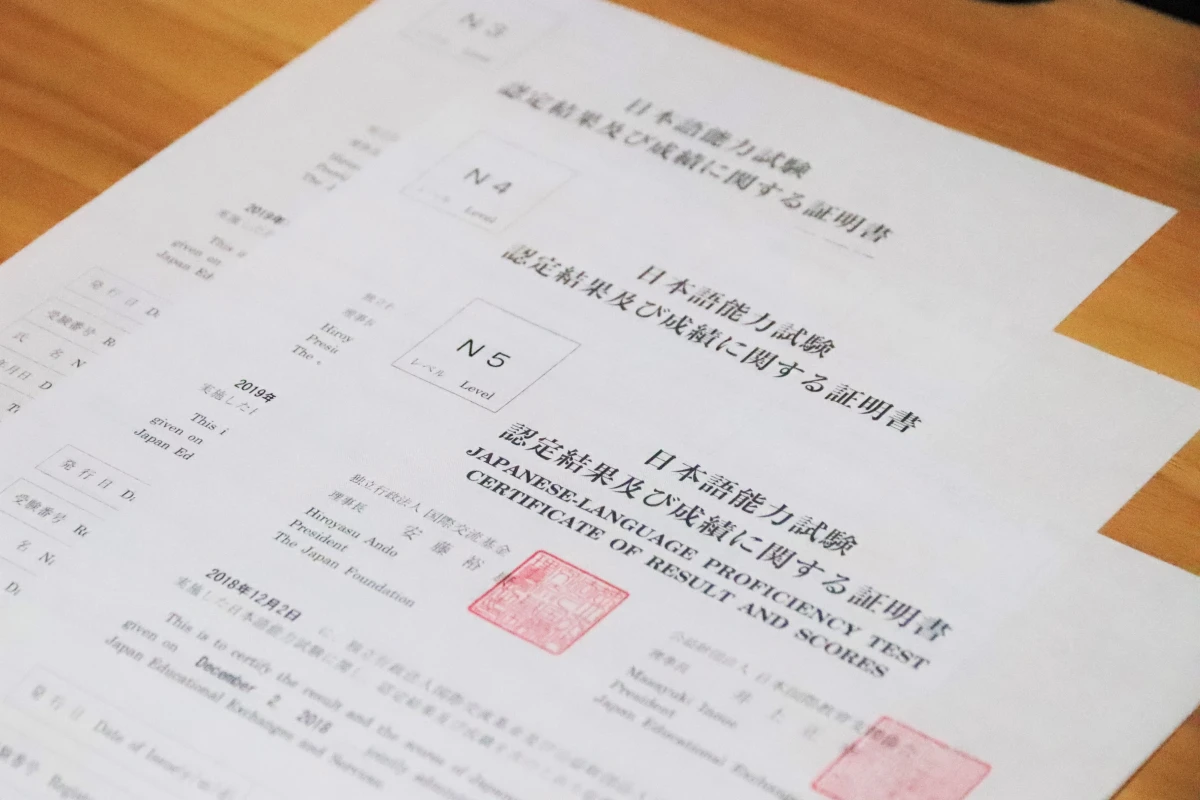 N3
日本語能力試験
認定結果及び成績に関する証明書
N4
レベル Level
2019年
実施した
This i
given on
Japan Ed
日本語能力試験
認定結果及び成績に関する証明書
発行日 D
受験番号 R
氏 名 N
年月日 D
N5
レベル Level
理事長
Hiroy
Presi
The
2019年
実施した
This i
given on
Japan Ed
日本語能力試験
認定結果及び成績に関する証明書
JAPANESE-LANGUAGE PROFICIENCY TEST
CERTIFICATE OF RESULT AND SCORES
発行日 D
受験番号 Re
名 N
D
独立行政法人 国際交流基金
理事長 安藤裕
Hiroyasu Ando
President
The Japan Foundation
公益財団法人 日本国際教育支援
理事長 井上正
Masayuki Inoue
President
Japan Educational Exchange
2018年12月2日 に、独立行政法人国際交流基金及び
実施した日本語能力試験に関し、認定結果及び成績を
This is to certify the result and the scores of Japanese
given on December 2, 2018 jointly admini
Japan Educational Exchanges and Services.
発行日 Date of Issue
番号 Regist